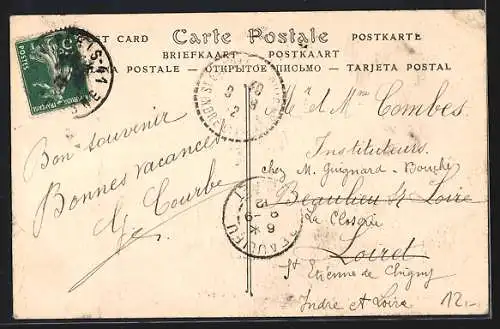 POST CARD Carte Postale POSTKARTE
BRIEFKAART POSTKAART
POSTALE — ОТКРЫТОЕ ПИСЬМО — TARJETA POSTAL
Bon souvenir
Bonnes vacances
G. Courbe
M. et Mme Combes
Instituteurs
chez M. Guignard-
Beaulieu s/ Loire
La Closerie
Loiret
St Etienne de Chigny
Indre et Loire
12,-
BEAULIEU
6 K
9 -9
12